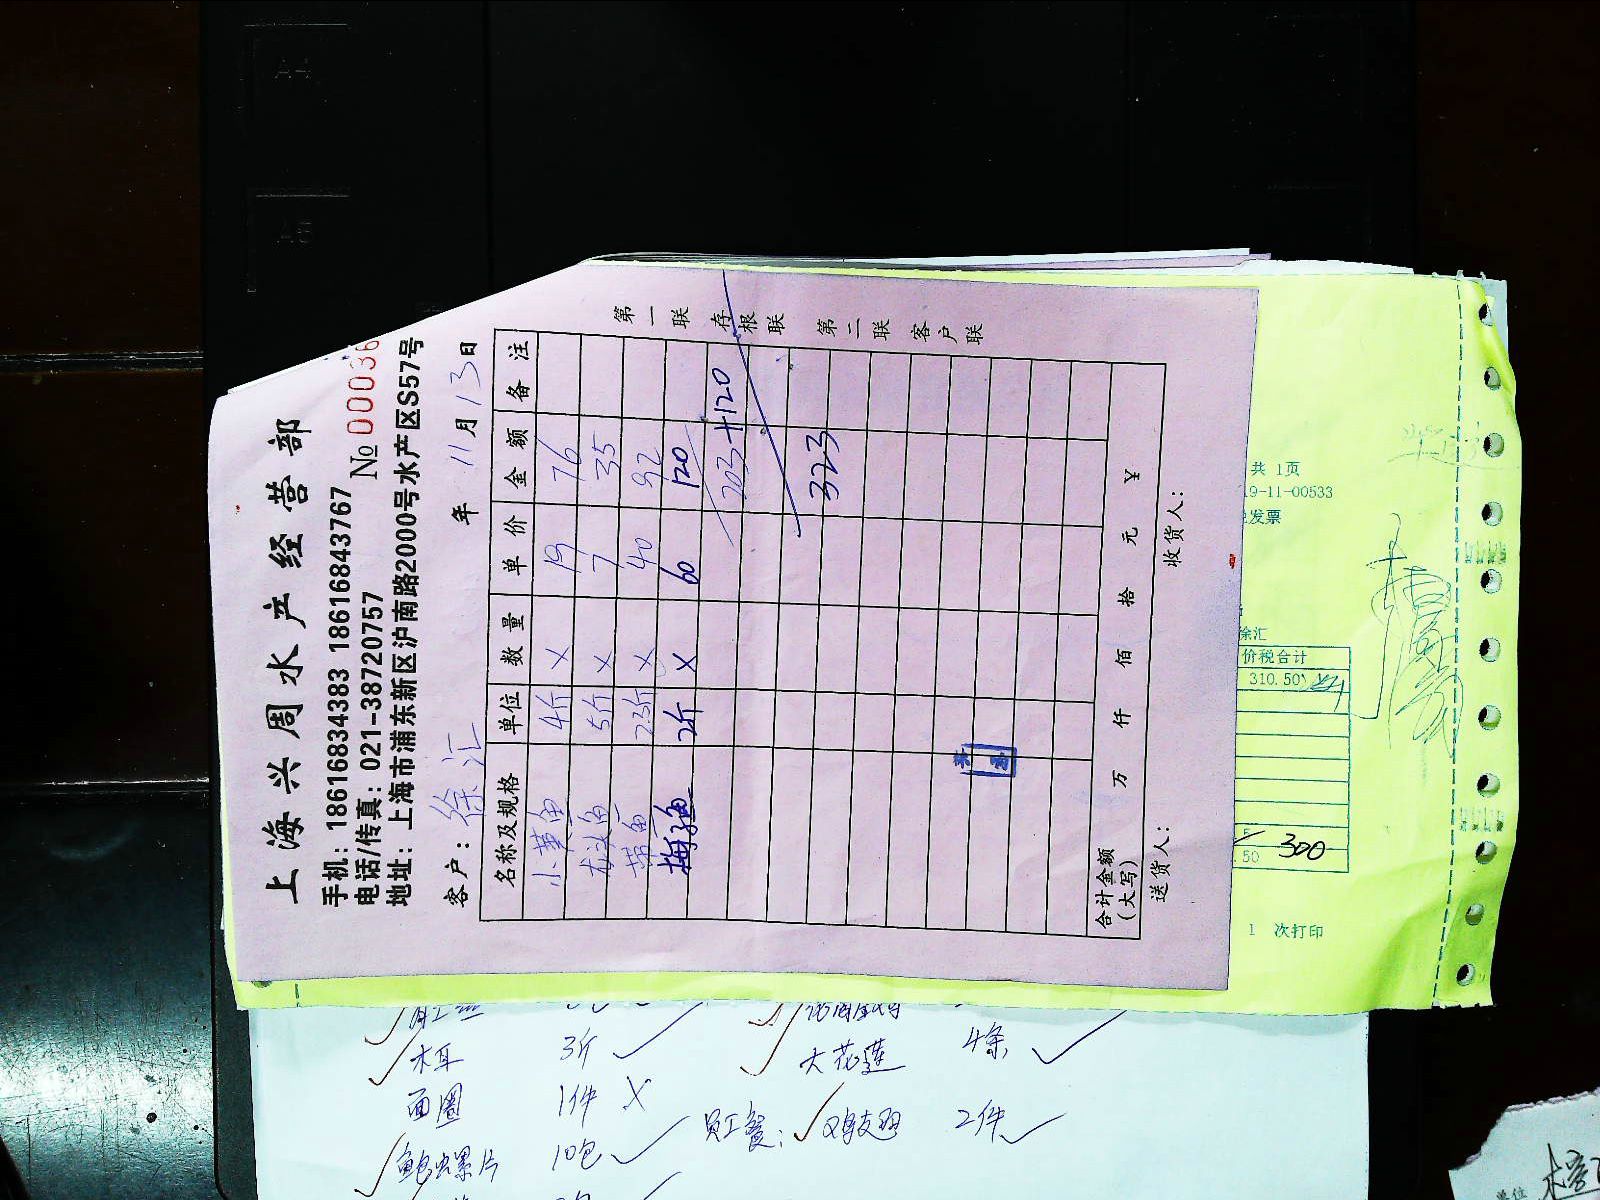 上海兴周水产经营部
手机：18616834383 18616843767
电话/传真：021-38720757
№ 00036
地址：上海市浦东新区沪南路2000号水产区S57号
客户：徐汇 年 11月13日
名称及规格 单位 数量 单价 金额 备注
小黄鱼 4斤 × 19 76
龙头鱼 5斤 × 7 35
带鱼 2.3斤 × 40 92
梅子鱼 2斤 × 60 120
203+120
323
合计金额（大写） 万 仟 佰 拾 元 ¥
送货人： 收货人：
第一联 存根联 第二联 客户联
共 1页
19-11-00533
发票
徐汇
价税合计
310.50
.50 300
1 次打印
木耳 3斤
大花莲 4条
面圈 1件 ×
员工餐： 2件
鲍螺片 10包
A4
A5
单位